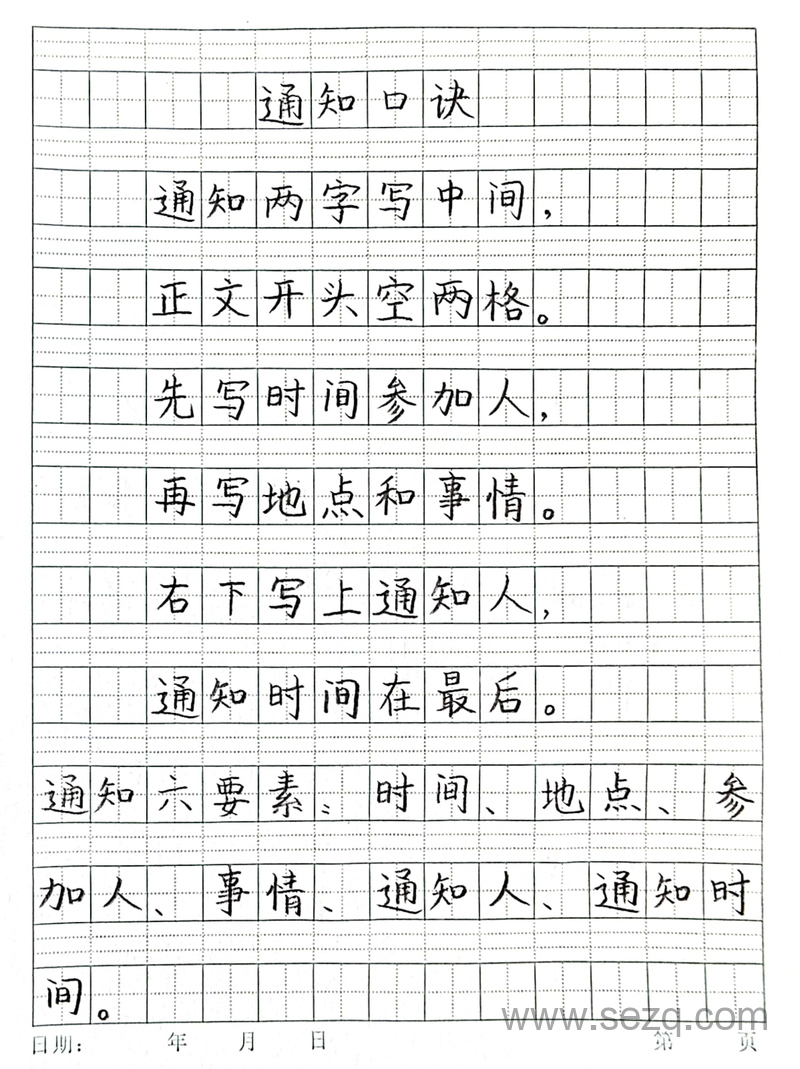 通知口诀
通知两字写中间，
正文开头空两格。
先写时间参加人，
再写地点和事情。
右下写上通知人，
通知时间在最后。
通知六要素：时间、地点、参
加人、事情、通知人、通知时
间。
www.sezq.com
日期： 年 月 日 第 页